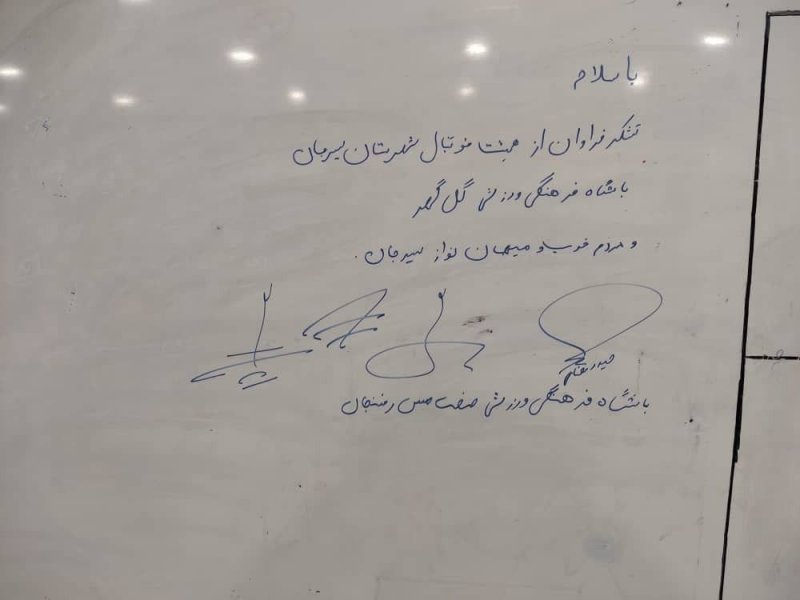 با سلام
تشکر فراوان از هیئت فوتبال شهرستان سیرجان
باشگاه فرهنگی ورزشی گل گهر
و مردم خوب و میهمان نواز سیرجان.
باشگاه فرهنگی ورزشی صنعت مس رفسنجان